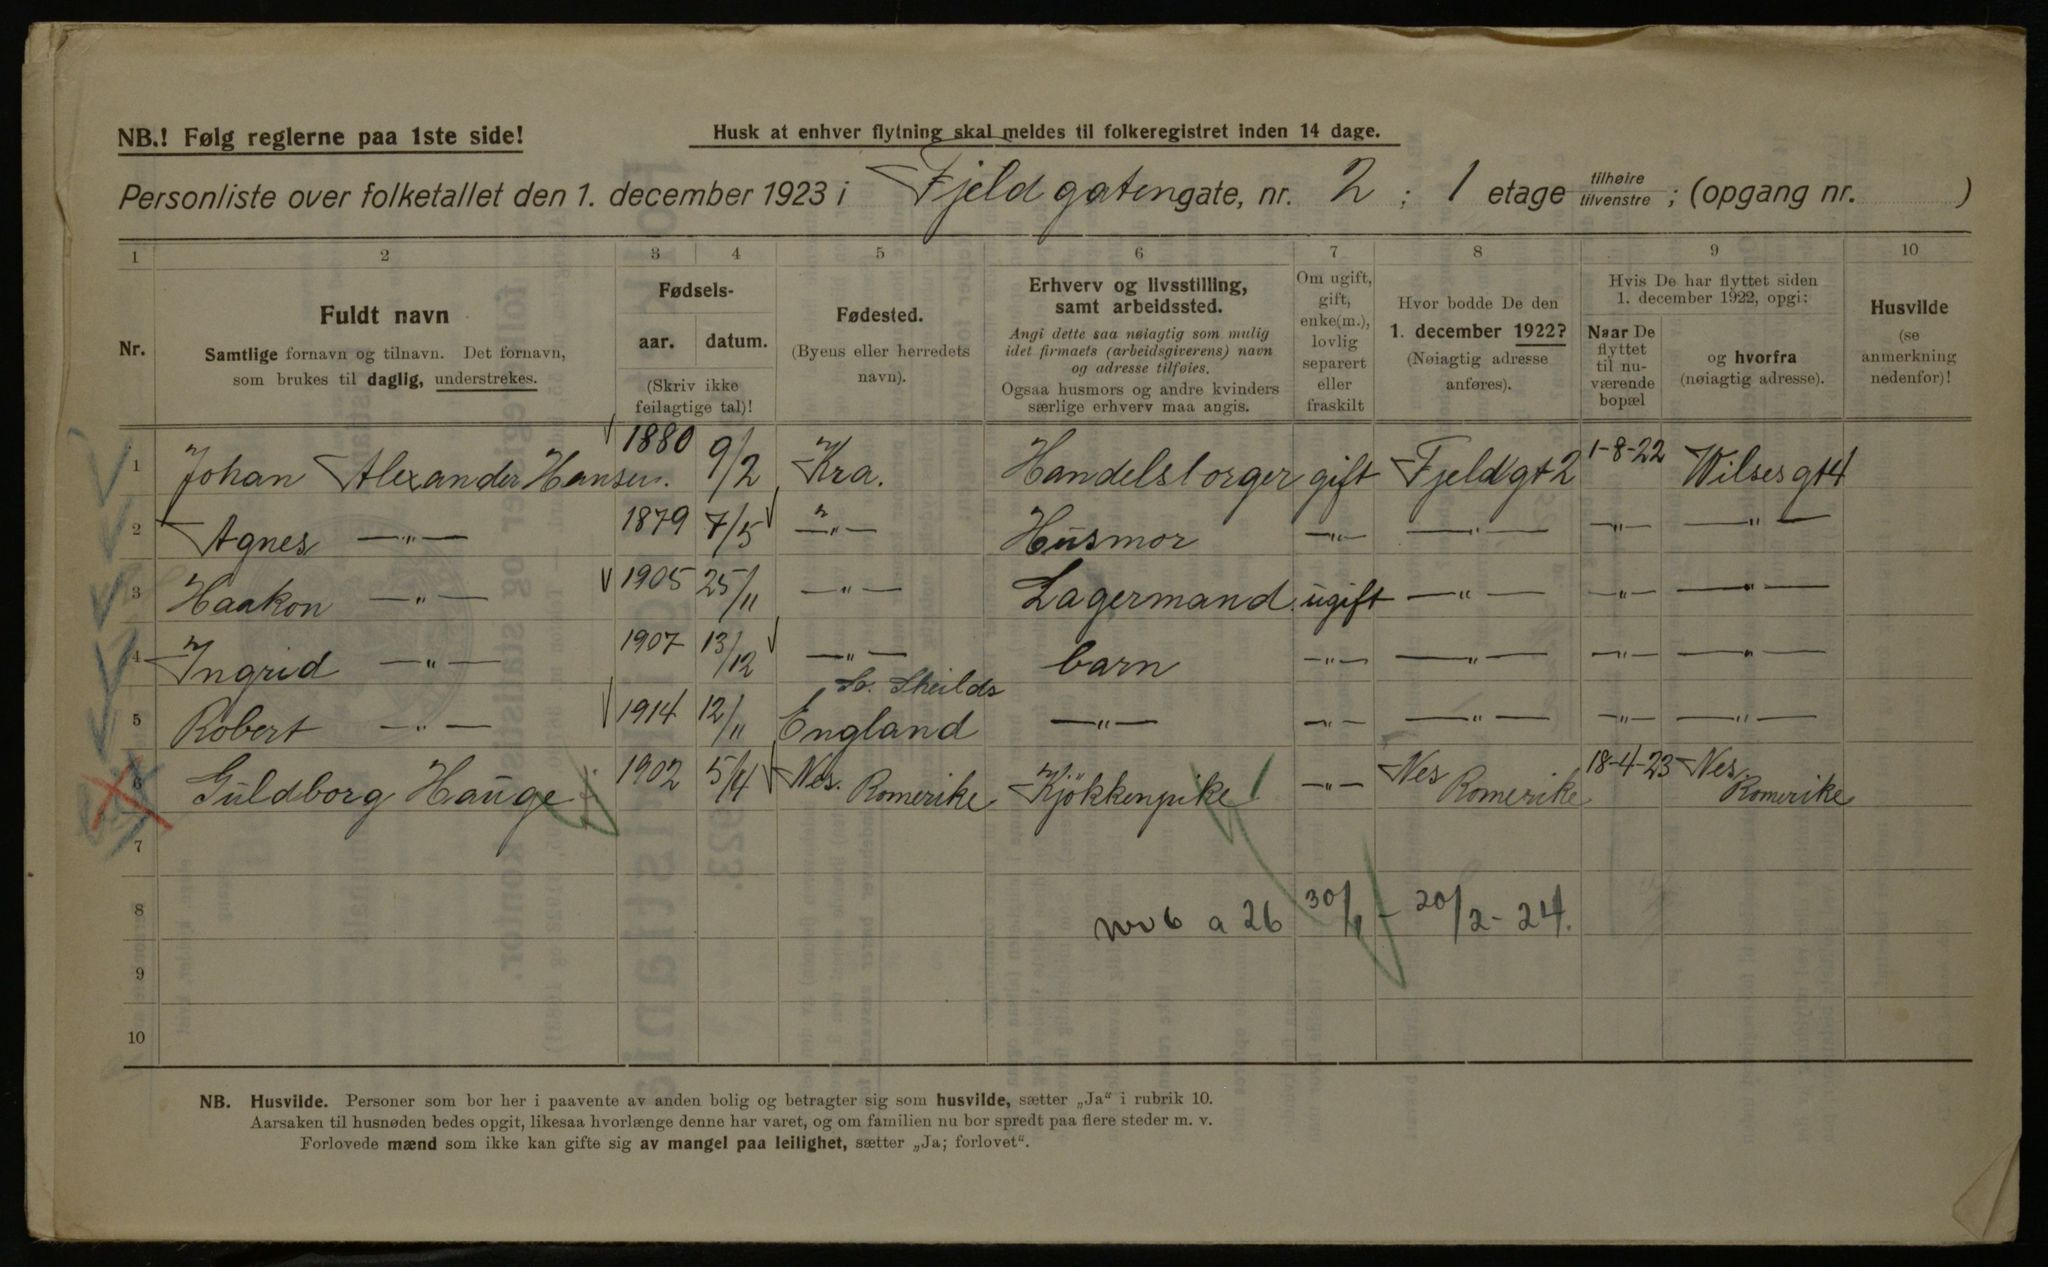 NB.! Følg reglerne paa 1ste side!
Husk at enhver flytning skal meldes til folkeregistret inden 14 dage.
Personliste over folketallet den 1. december 1923 i Fjeldgaten gate, nr. 2 ; 1 etage tilhøire tilvenstre ; (opgang nr. )
1 2 3 4 5 6 7 8 9 10
Nr.
Fuldt navn
Samtlige fornavn og tilnavn. Det fornavn,
som brukes til daglig, understrekes.
Fødsels-
aar. datum.
(Skriv ikke
feilagtige tal)!
Fødested.
(Byens eller herredets
navn).
Erhverv og livsstilling,
samt arbeidssted.
Angi dette saa nøiagtig som mulig
idet firmaets (arbeidsgiverens) navn
og adresse tilføies.
Ogsaa husmors og andre kvinders
særlige erhverv maa angis.
Om ugift,
gift,
enke(m.),
lovlig
separert
eller
fraskilt
Hvor bodde De den
1. december 1922?
(Nøiagtig adresse
anføres).
Hvis De har flyttet siden
1. december 1922, opgi:
Naar De
flyttet
til nu-
værende
bopæl
og hvorfra
(nøiagtig adresse).
Husvilde
(se
anmerkning
nedenfor)!
1 Johan Alexander Hansen. 1880 9/2 Kra. Handelsborger gift Fjeldgt 2 1-8-22 Wilses gt 4
2 Agnes —"— 1879 7/5 —"— Husmor —"— —"— —"— —"—
3 Haakon —"— 1905 25/11 —"— Lagermand ugift —"— —"— —"—
4 Ingrid —"— 1907 13/12 —"— barn —"— —"— —"— —"—
5 Robert —"— 1914 12/11 So. Sheilds England —"— —"— —"— —"— —"—
6 Guldborg Hauge 1902 5/4 Nes. Romerike Kjökkenpike —"— Nes Romerike 18-4-23 Nes. Romerike
7
8 a 26 30/1 - 20/2 - 24.
9
10
NB. Husvilde. Personer som bor her i paavente av anden bolig og betragter sig som husvilde, sætter „Ja“ i rubrik 10.
Aarsaken til husnøden bedes opgit, likesaa hvorlænge denne har varet, og om familien nu bor spredt paa flere steder m. v.
Forlovede mænd som ikke kan gifte sig av mangel paa leilighet, sætter „Ja; forlovet“.